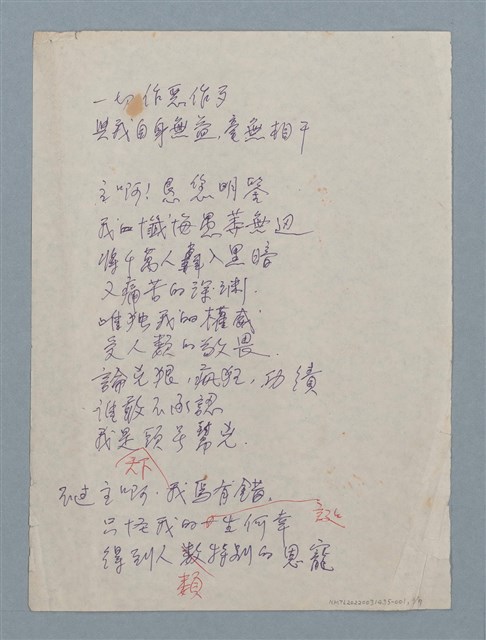 一切作惡作歹
與我自身無益，毫無相干
主啊！恳您明鑒
我的懺悔愚莽無边
將千萬人轟入黑暗
又痛苦的深渊.
唯独我的權威
受人類的敬畏.
論兇狠，瘋狂，功績
誰敢不承認
我是頭号幫兇.
天下
不过主啊，我焉有錯.
只怪我的一生何幸
得到人數特别的恩寵
類
NMTL20220031035-001,